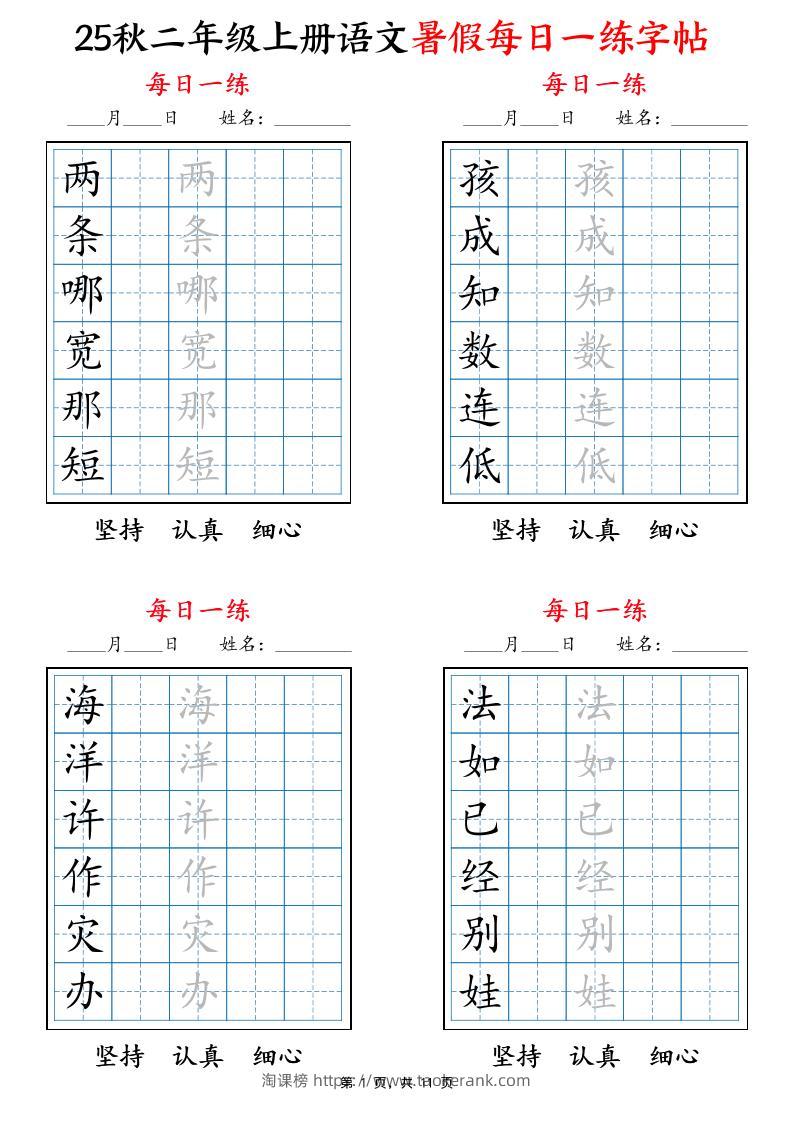 25秋二年级上册语文暑假每日一练字帖
每日一练
____月____日 姓名：________
两 两
条 条
哪 哪
宽 宽
那 那
短 短
坚持 认真 细心
每日一练
____月____日 姓名：________
孩 孩
成 成
知 知
数 数
连 连
低 低
坚持 认真 细心
每日一练
____月____日 姓名：________
海 海
洋 洋
许 许
作 作
灾 灾
办 办
坚持 认真 细心
每日一练
____月____日 姓名：________
法 法
如 如
已 已
经 经
别 别
娃 娃
坚持 认真 细心
淘课榜 https://www.taokerank.com
第 1 页，共 11 页